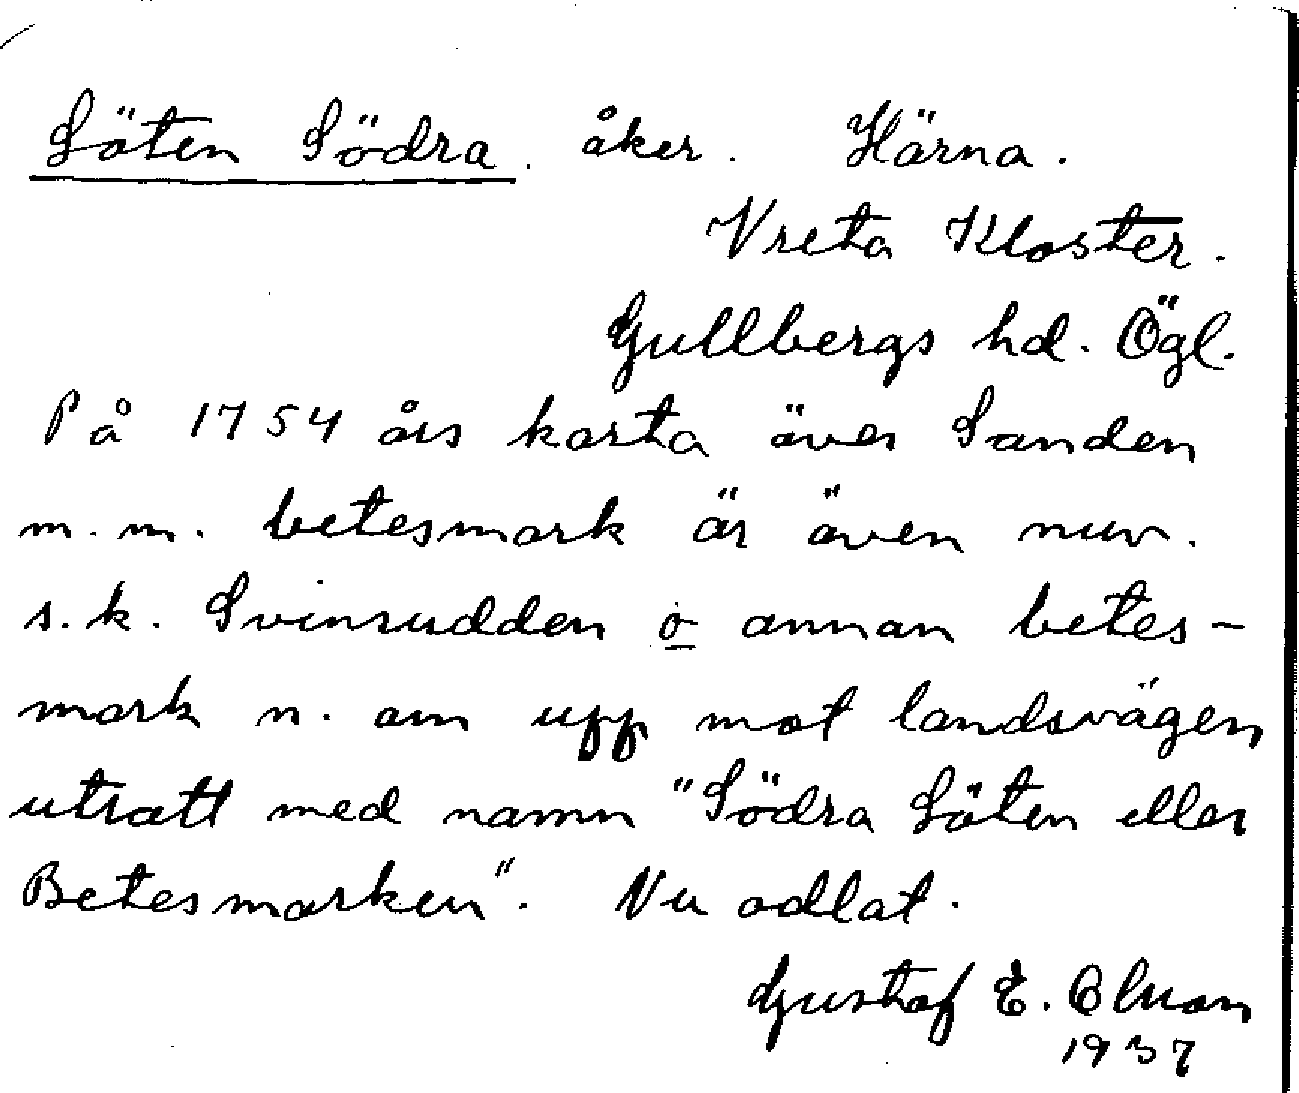 Löten Södra. åker. Härna.
Vreta Kloster.
Gullbergs hd. Ögl.
På 1754 års karta över Sanden
m.m. betesmark är även nuv.
s.k. Svinrudden o annan betes-
mark n. om upp mot landsvägen
utsatt med namn "Södra Löten eller
Betesmarken". Nu odlat.
Gustaf E.
1937